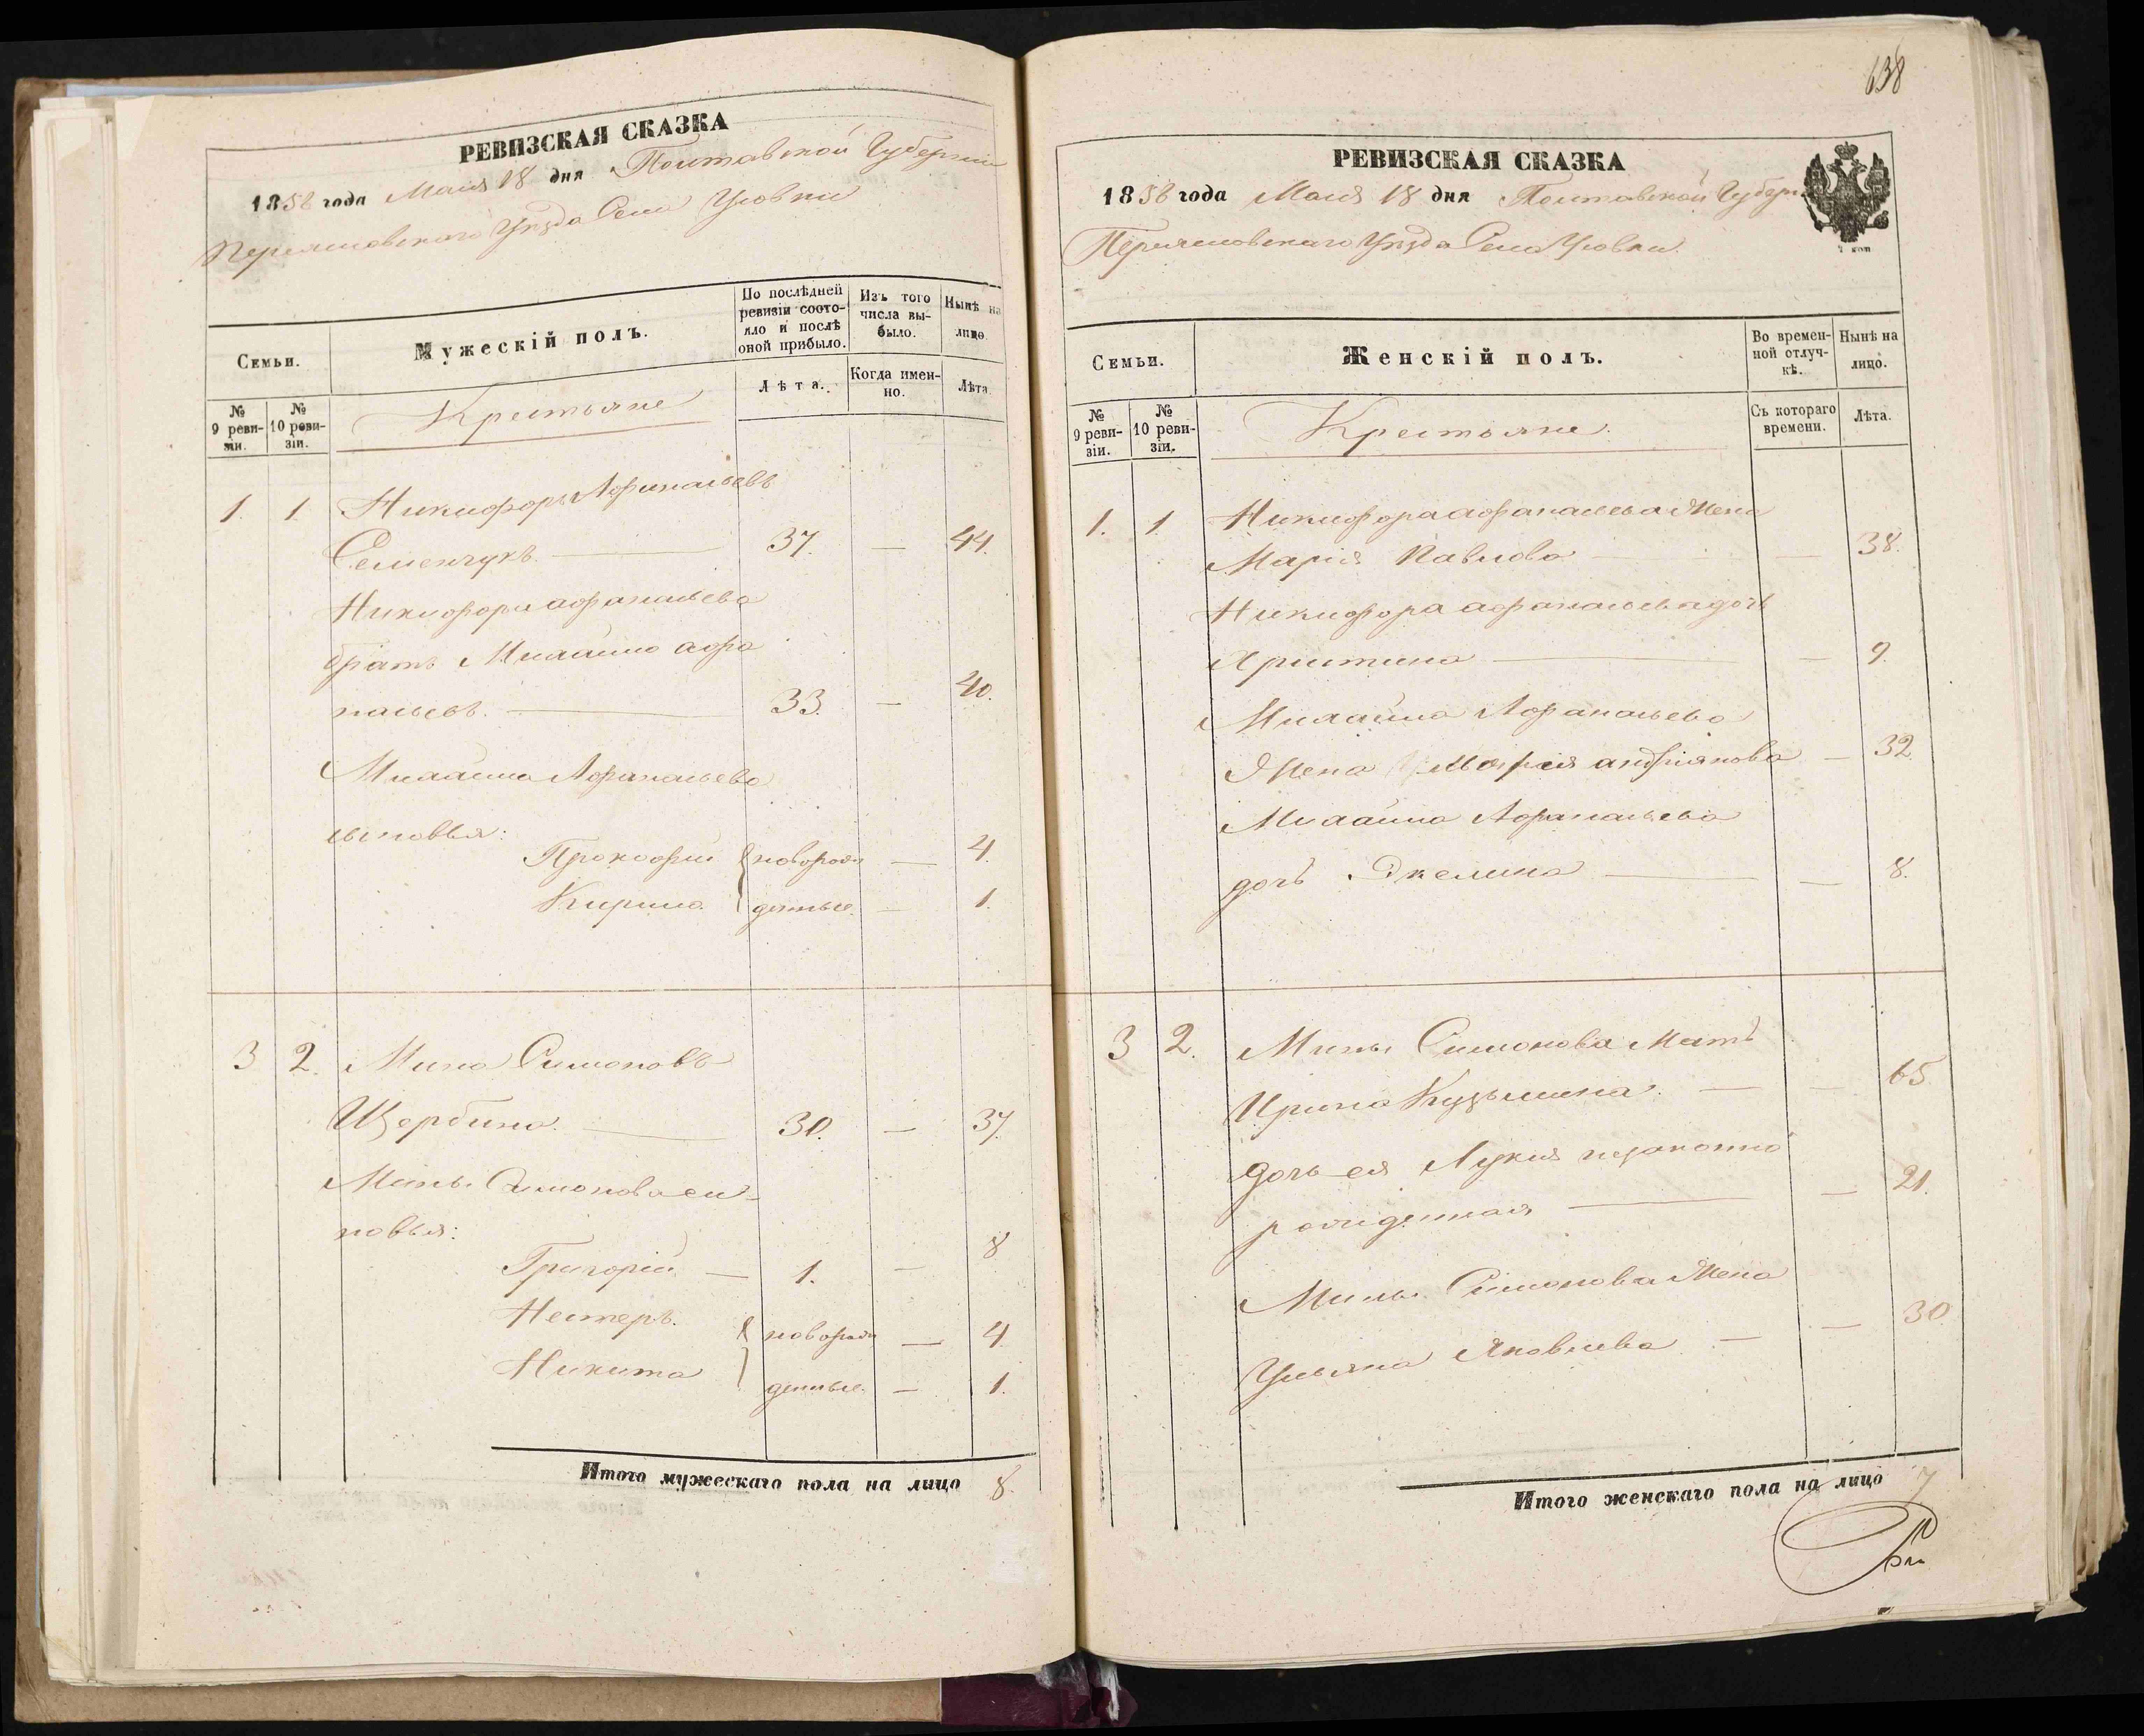 РЕВИЗСКАЯ СКАЗКА
1858 года Маія 18 дня Полтавской Губерніи
Переяславскаго Уѣзда Села Усовки
Семьи.
Мужескій полъ.
По послѣдней ревизіи состояло и послѣ оной прибыло.
Изъ того числа выбыло.
Нынѣ на лицо.
№ 9 ревизіи.
№ 10 ревизіи.
Крестьяне
Лѣта.
Когда именно.
Лѣта
1. 1. Никифоръ Афанасьевъ
Семенчукъ 37. — 44.
Никифора афанасьева
братъ Михайло афа
насьевъ. 33. — 40.
Михайла Афанасьева
сыновья:
Прокофій новорож — 4.
Кирило денные. — 1.
3 2. Мина Симоновъ
Щербина. 30. — 37.
Мины Симонова сы-
новья:
Григорій — 1. — 8
Нестеръ. новорож — 4.
Никита денные. — 1.
Итого мужескаго пола на лицо 8.
638
РЕВИЗСКАЯ СКАЗКА
1858 года Маія 18 дня Полтавской Губерн
Переяславскаго Уѣзда Села Усовки.
Семьи.
Женскій полъ.
Во временной отлучкѣ.
Нынѣ на лицо.
№ 9 ревизіи.
№ 10 ревизіи.
Крестьяне.
Съ котораго времени.
Лѣта.
1. 1. Никифора афанасьева Жена
Марія Павлова — 38.
Никифора афанасьева дочь
Христина — 9.
Михайла Афанасьева
Жена Марія андріянова — 32
Михайла Афанасьева
дочь — 8.
3 2. Мины Симонова Мать
Ирина Кузьмина. — 65
дочь ея Лукія незаконно
рожденная — 21.
Мины Симонова Жена
Ульяна Яковлева — 30
Итого женскаго пола на лицо 7